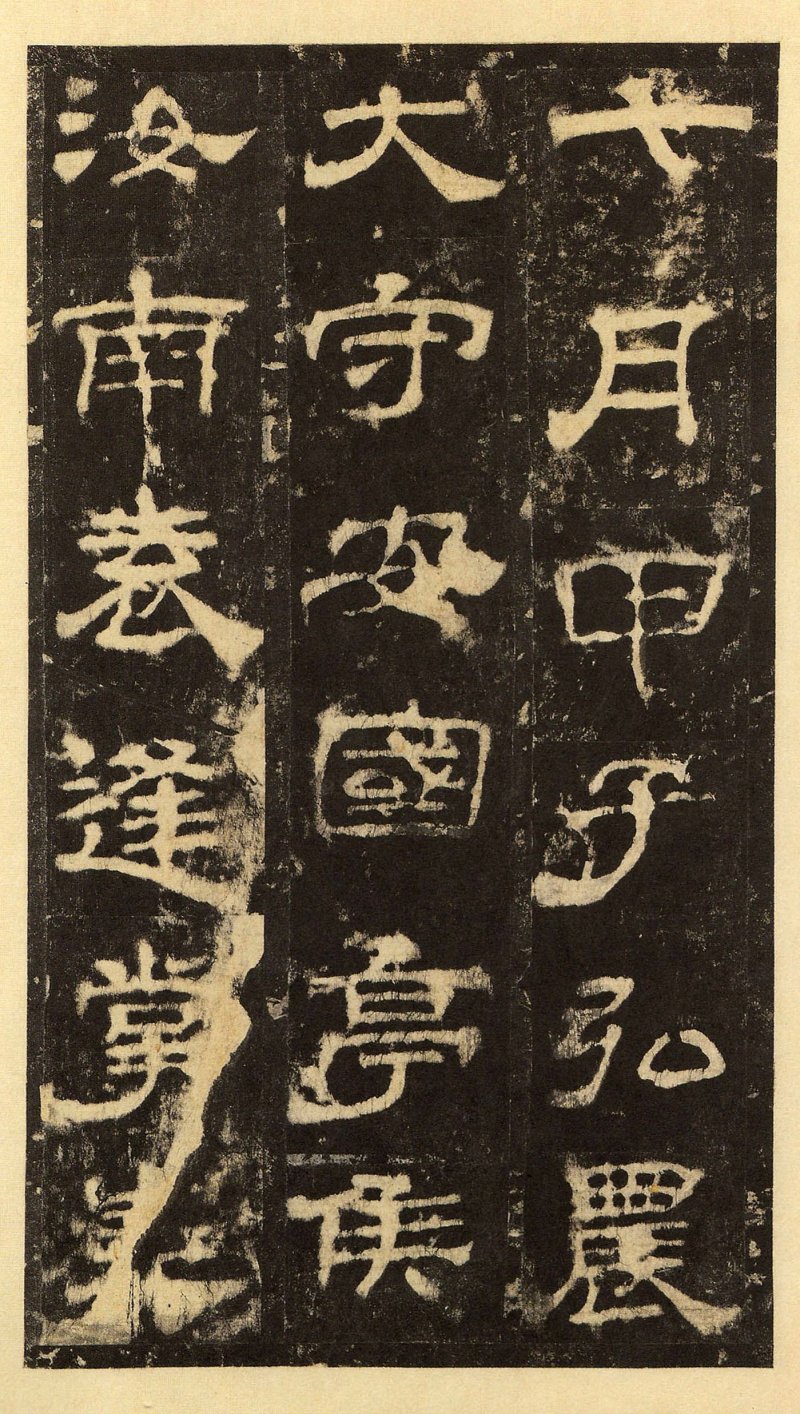 七月甲子弘農
大守安國亭侯
汝南袁逢掌華